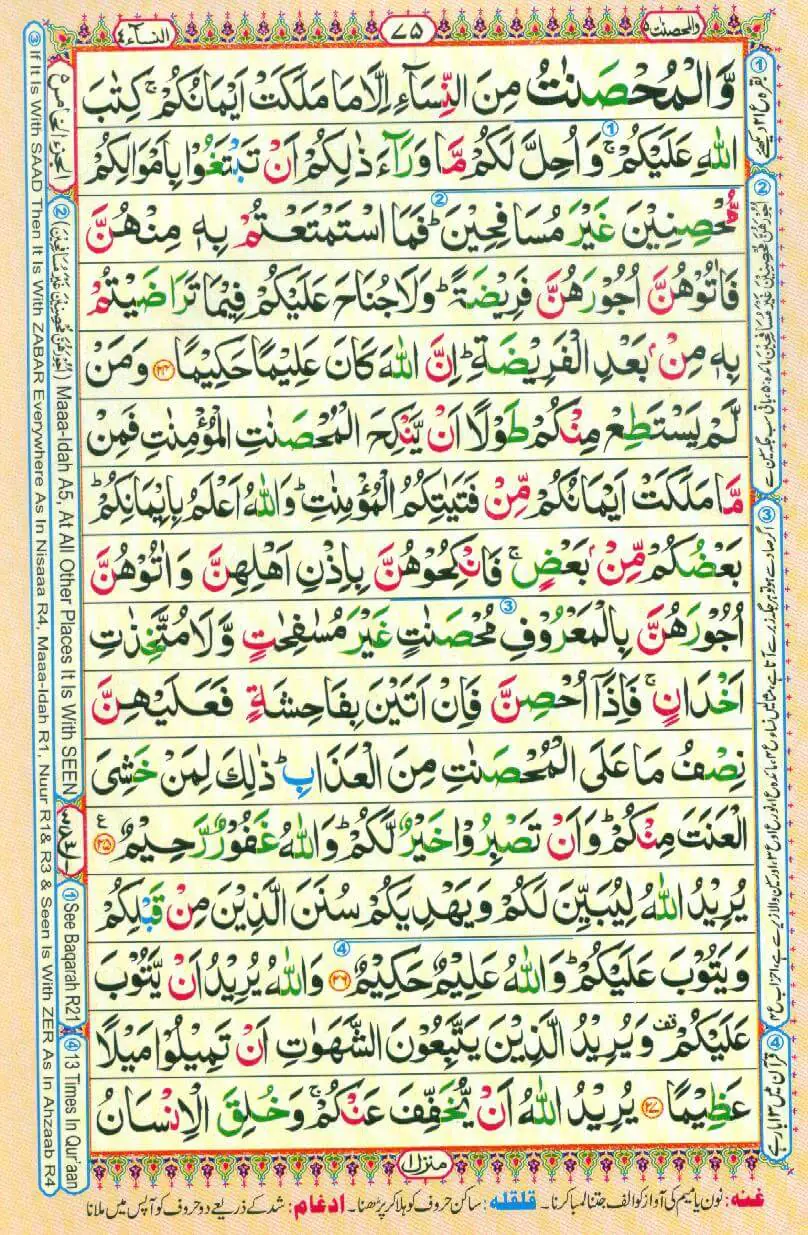 النساء ۴
۷۵
والمحصنت ۵
وَّالْمُحْصَنٰتُ مِنَ النِّسَآءِ اِلَّا مَا مَلَكَتْ اَيْمَانُكُمْ ۚ كِتٰبَ
اللّٰهِ عَلَيْكُمْ ۚ وَاُحِلَّ لَكُمْ مَّا وَرَآءَ ذٰلِكُمْ اَنْ تَبْتَغُوْا بِاَمْوَالِكُمْ
مُّحْصِنِيْنَ غَيْرَ مُسَافِحِيْنَ ؕ فَمَا اسْتَمْتَعْتُمْ بِهٖ مِنْهُنَّ
فَاٰتُوْهُنَّ اُجُوْرَهُنَّ فَرِيْضَةً ؕ وَلَا جُنَاحَ عَلَيْكُمْ فِيْمَا تَرَاضَيْتُمْ
بِهٖ مِنْۢ بَعْدِ الْفَرِيْضَةِ ؕ اِنَّ اللّٰهَ كَانَ عَلِيْمًا حَكِيْمًا ۝۲۴ وَمَنْ
لَّمْ يَسْتَطِعْ مِنْكُمْ طَوْلًا اَنْ يَّنْكِحَ الْمُحْصَنٰتِ الْمُؤْمِنٰتِ فَمِنْ
مَّا مَلَكَتْ اَيْمَانُكُمْ مِّنْ فَتَيٰتِكُمُ الْمُؤْمِنٰتِ ؕ وَاللّٰهُ اَعْلَمُ بِاِيْمَانِكُمْ ؕ
بَعْضُكُمْ مِّنْۢ بَعْضٍ ۚ فَانْكِحُوْهُنَّ بِاِذْنِ اَهْلِهِنَّ وَاٰتُوْهُنَّ
اُجُوْرَهُنَّ بِالْمَعْرُوْفِ مُحْصَنٰتٍ غَيْرَ مُسٰفِحٰتٍ وَّلَا مُتَّخِذٰتِ
اَخْدَانٍ ۚ فَاِذَاۤ اُحْصِنَّ فَاِنْ اَتَيْنَ بِفَاحِشَةٍ فَعَلَيْهِنَّ
نِصْفُ مَا عَلَى الْمُحْصَنٰتِ مِنَ الْعَذَابِ ؕ ذٰلِكَ لِمَنْ خَشِىَ
الْعَنَتَ مِنْكُمْ ؕ وَاَنْ تَصْبِرُوْا خَيْرٌ لَّكُمْ ؕ وَاللّٰهُ غَفُوْرٌ رَّحِيْمٌ ۝۲۵
يُرِيْدُ اللّٰهُ لِيُبَيِّنَ لَكُمْ وَيَهْدِيَكُمْ سُنَنَ الَّذِيْنَ مِنْ قَبْلِكُمْ
وَيَتُوْبَ عَلَيْكُمْ ؕ وَاللّٰهُ عَلِيْمٌ حَكِيْمٌ ۝۲۶ وَاللّٰهُ يُرِيْدُ اَنْ يَّتُوْبَ
عَلَيْكُمْ ۟ وَيُرِيْدُ الَّذِيْنَ يَتَّبِعُوْنَ الشَّهَوٰتِ اَنْ تَمِيْلُوْا مَيْلًا
عَظِيْمًا ۝۲۷ يُرِيْدُ اللّٰهُ اَنْ يُّخَفِّفَ عَنْكُمْ ۚ وَخُلِقَ الْاِنْسَانُ
منزل ۱
غنه: نون یا میم کی آواز کو الف جتنا لمبا کرنا۔ قلقله: ساکن حروف کو ہلا کر پڑھنا۔ ادغام: شد کے ذریعے دو حروف کو آپس میں ملانا
① بقرہ ع ۲۱ دیکھئے
④ قرآن میں ۱۳ بار ہے
الجزء الخامس
② (اُجُوْرَهُنَّ مُحْصِنِيْنَ غَيْرَ مُسَافِحِيْنَ) Maaa-Idah A5, At All Other Places It Is With SEEN
① See Baqarah R21
④ 13 Times In Qur'aan
③ If It Is With SAAD Then It Is With ZABAR Everywhere As In Nisaaa R4, Maaa-Idah R1, Nuur R1& R3 & Seen Is With ZER As In Ahzaab R4